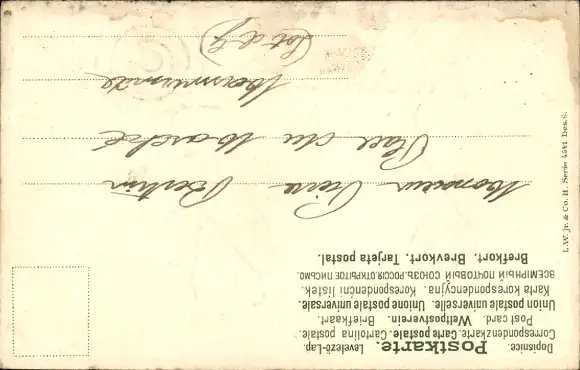 Dopisnice. Postkarte. Levelező-Lap.
Correspondenzkarte. Carte postale. Cartolina postale.
Post card. Weltpostverein. Briefkaart.
Union postale universelle. Unione postale universale.
Karta korespondencyjna. Korespondenční lístek.
ВСЕМІРНЫЙ ПОЧТОВЫЙ СОЮЗЪ. РОССІЯ. ОТКРЫТОЕ ПИСЬМО.
Brefkort. Brevkort. Tarjeta postal.
Monsieur Bertin
Place du Marché
(Lot & G)
L.W. jr. & Co. H. Serie 4541 Des. 6.